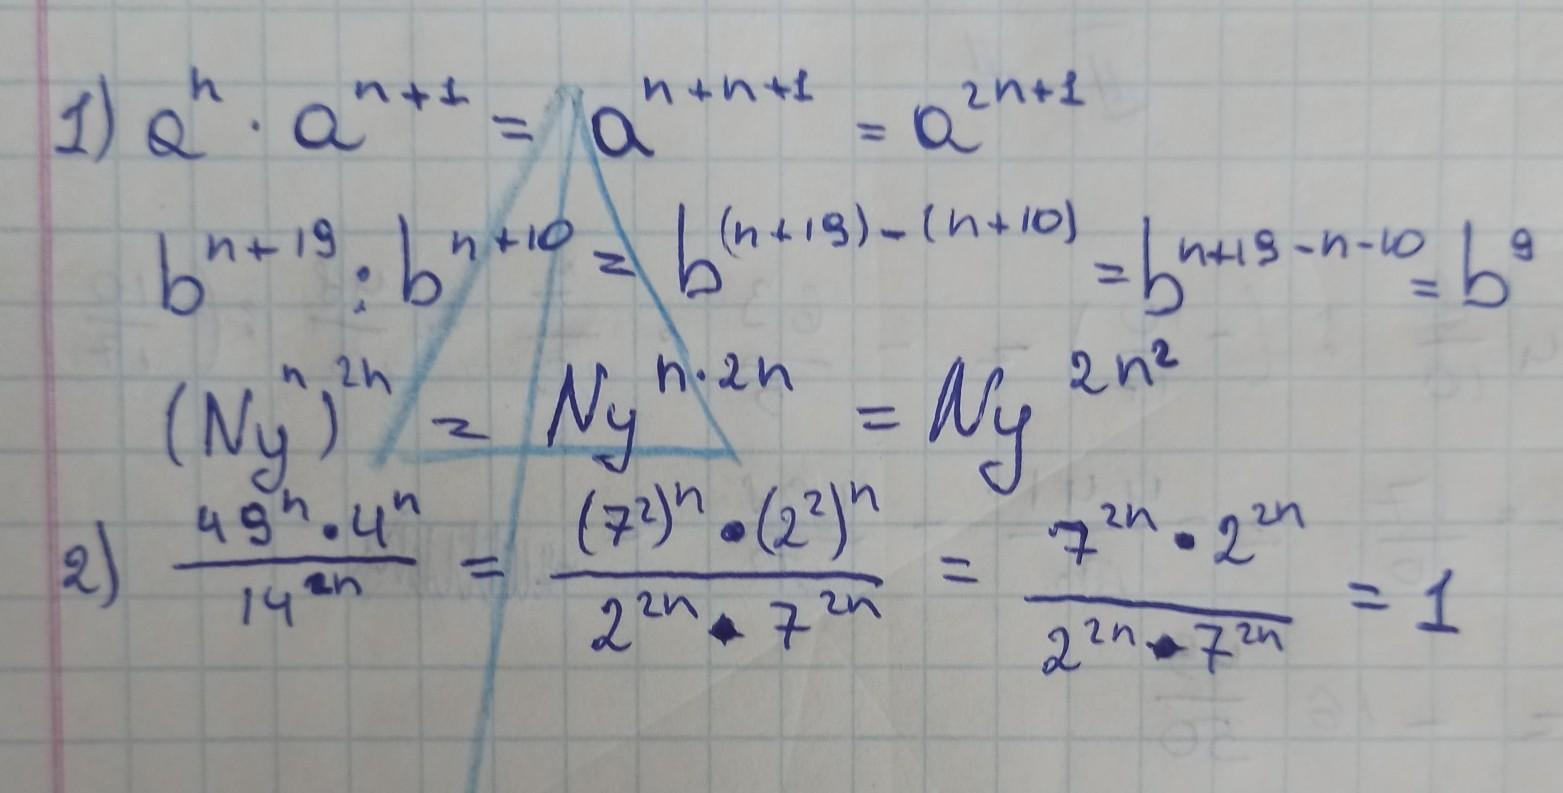 1) aⁿ · aⁿ⁺¹ = aⁿ⁺ⁿ⁺¹ = a²ⁿ⁺¹
bⁿ⁺¹⁹ : bⁿ⁺¹⁰ = b⁽ⁿ⁺¹⁹⁾⁻⁽ⁿ⁺¹⁰⁾ = bⁿ⁺¹⁹⁻ⁿ⁻¹⁰ = b⁹
(Nyⁿ)²ⁿ = Ny^(n·2n) = Ny^(2n²)
2) (49ⁿ · 4ⁿ)/(14²ⁿ) = ((7²)ⁿ · (2²)ⁿ)/(2²ⁿ · 7²ⁿ) = (7²ⁿ · 2²ⁿ)/(2²ⁿ · 7²ⁿ) = 1